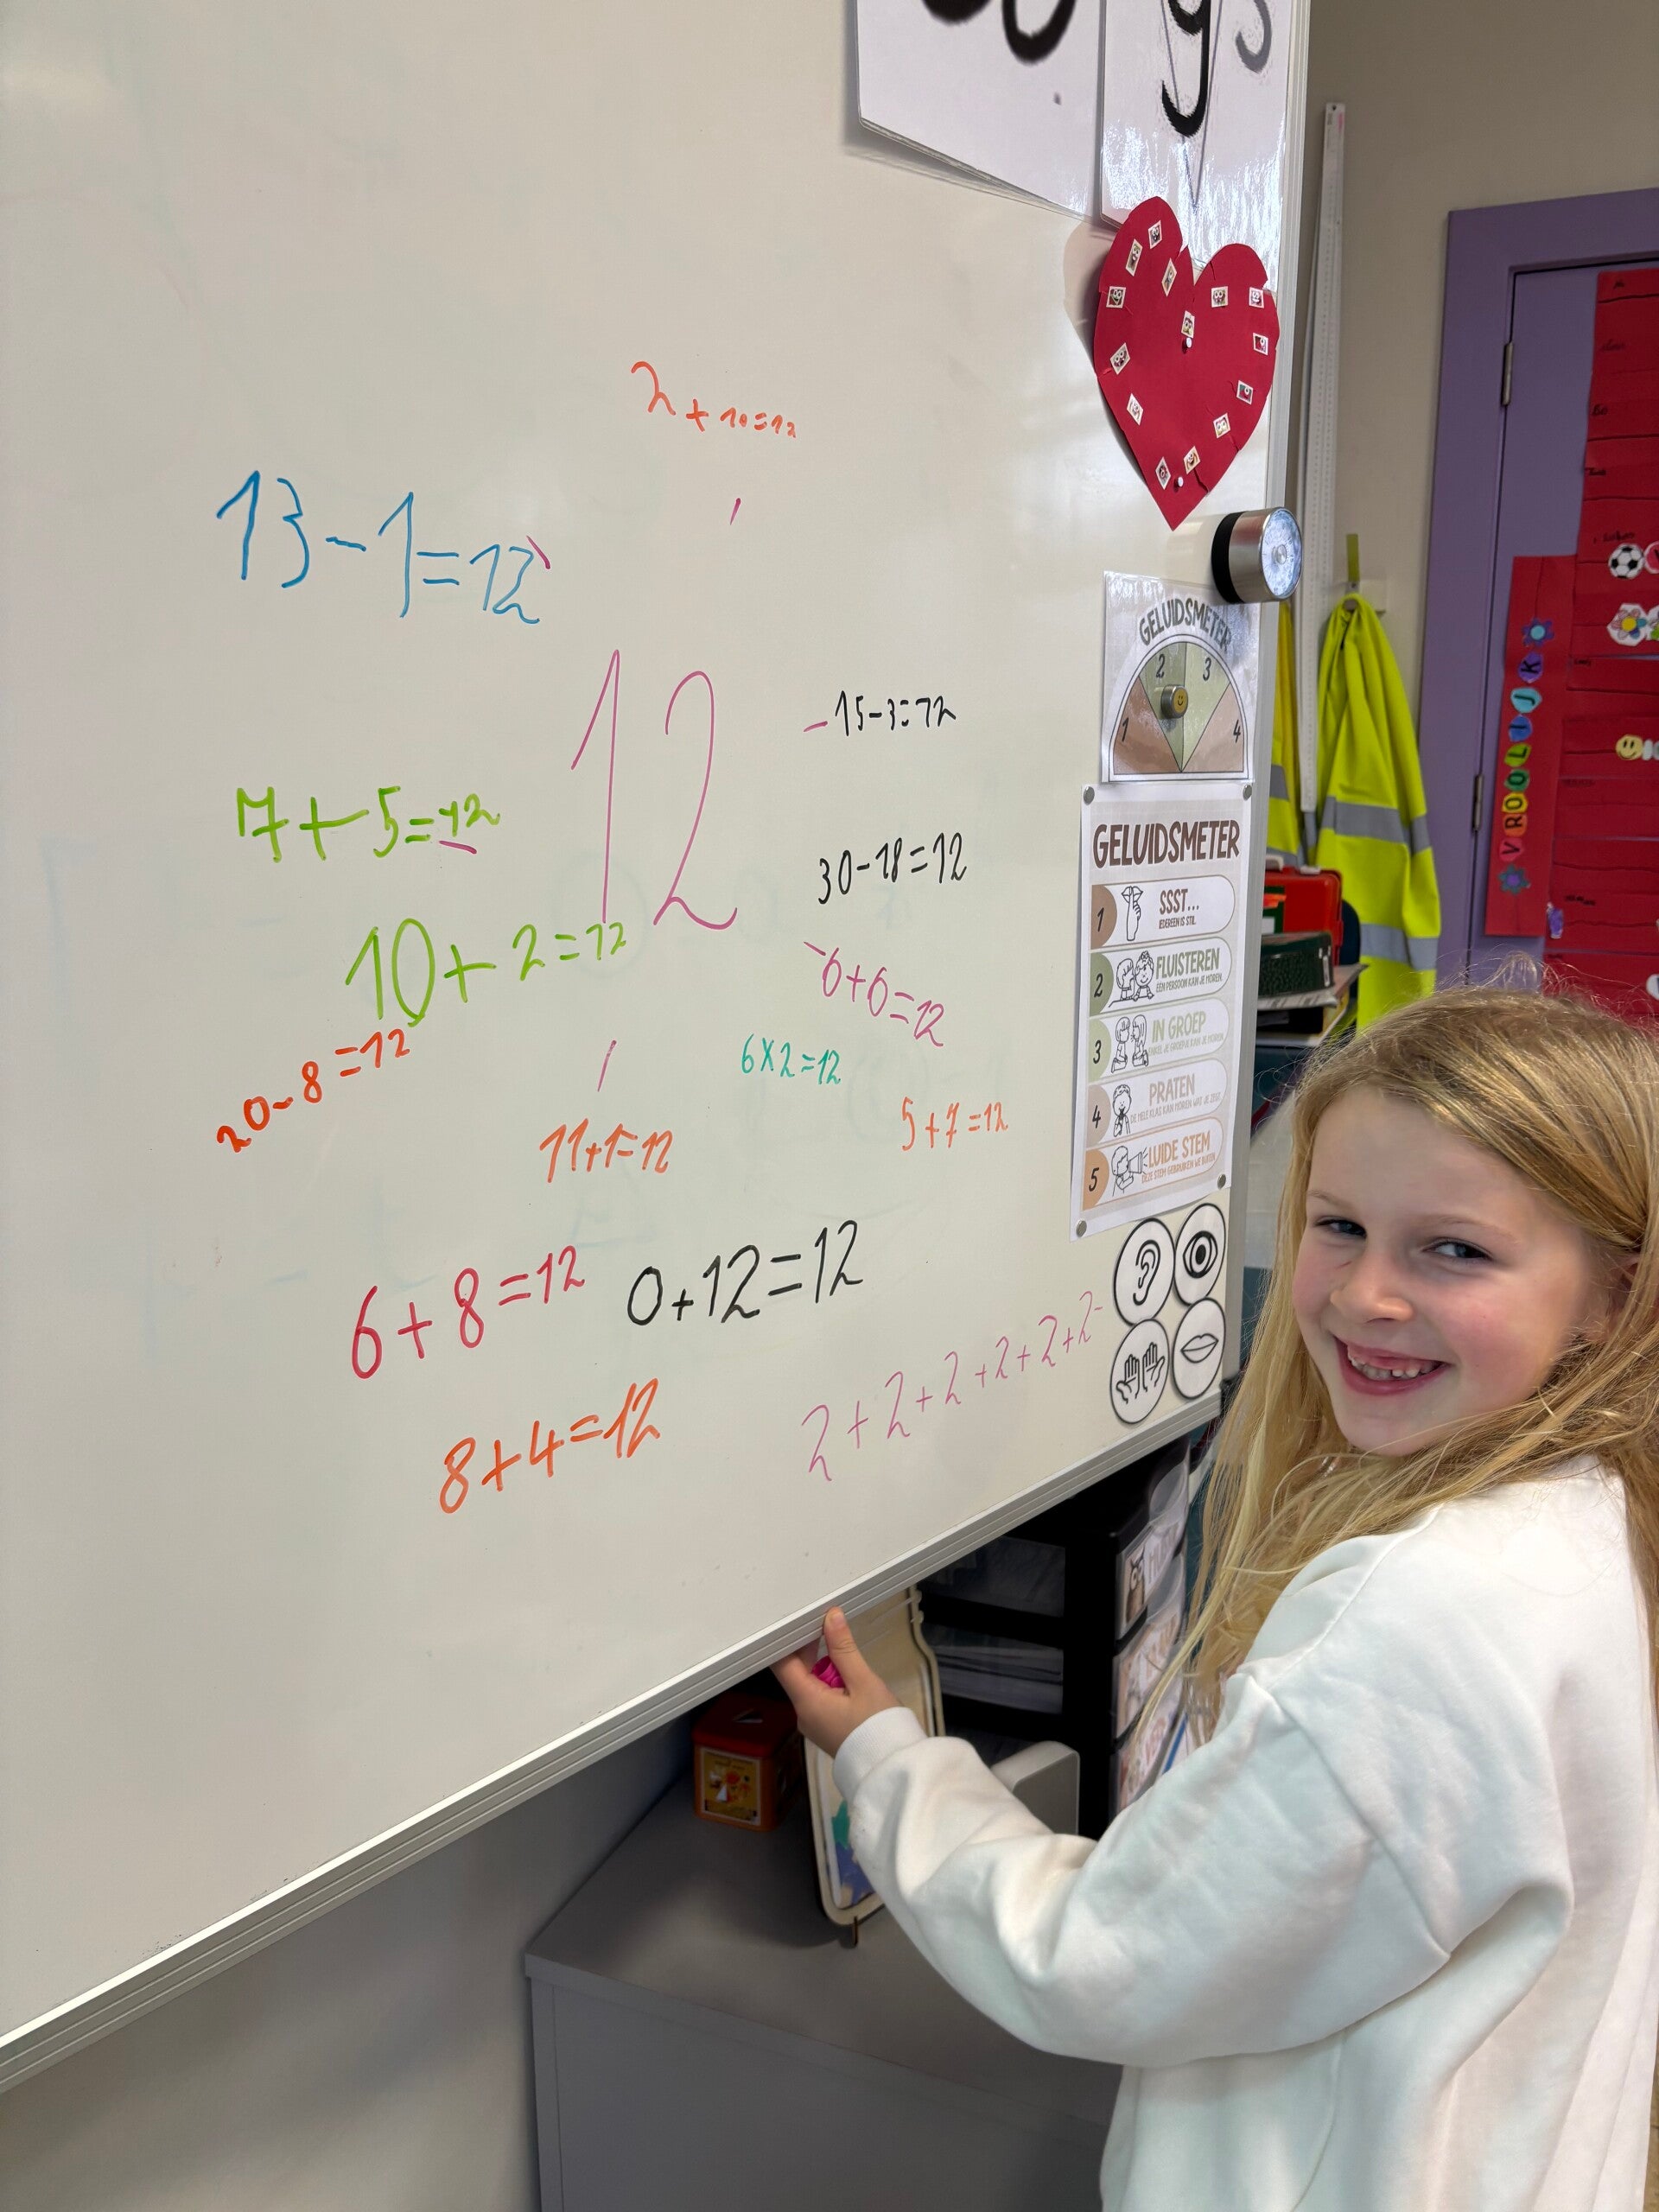 ys
2+10=12
13-1=12
12
15-3=12
7+5=12
30-18=12
10+2=12
6+6=12
20-8=12
6x2=12
11+1=12
5+7=12
6+8=12
0+12=12
8+4=12
2+2+2+2+2+2
GELUIDSMETER
1 2 3 4
GELUIDSMETER
1 SSST...
IEDEREEN IS STIL
2 FLUISTEREN
EEN PERSOON KAN JE HOREN
3 IN GROEP
ENKEL JE GROEPJE KAN JE HOREN
4 PRATEN
DE HELE KLAS KAN HOREN WAT JE ZEGT
5 LUIDE STEM
DEZE STEM GEBRUIKEN WE BUITEN
VROOLIJK